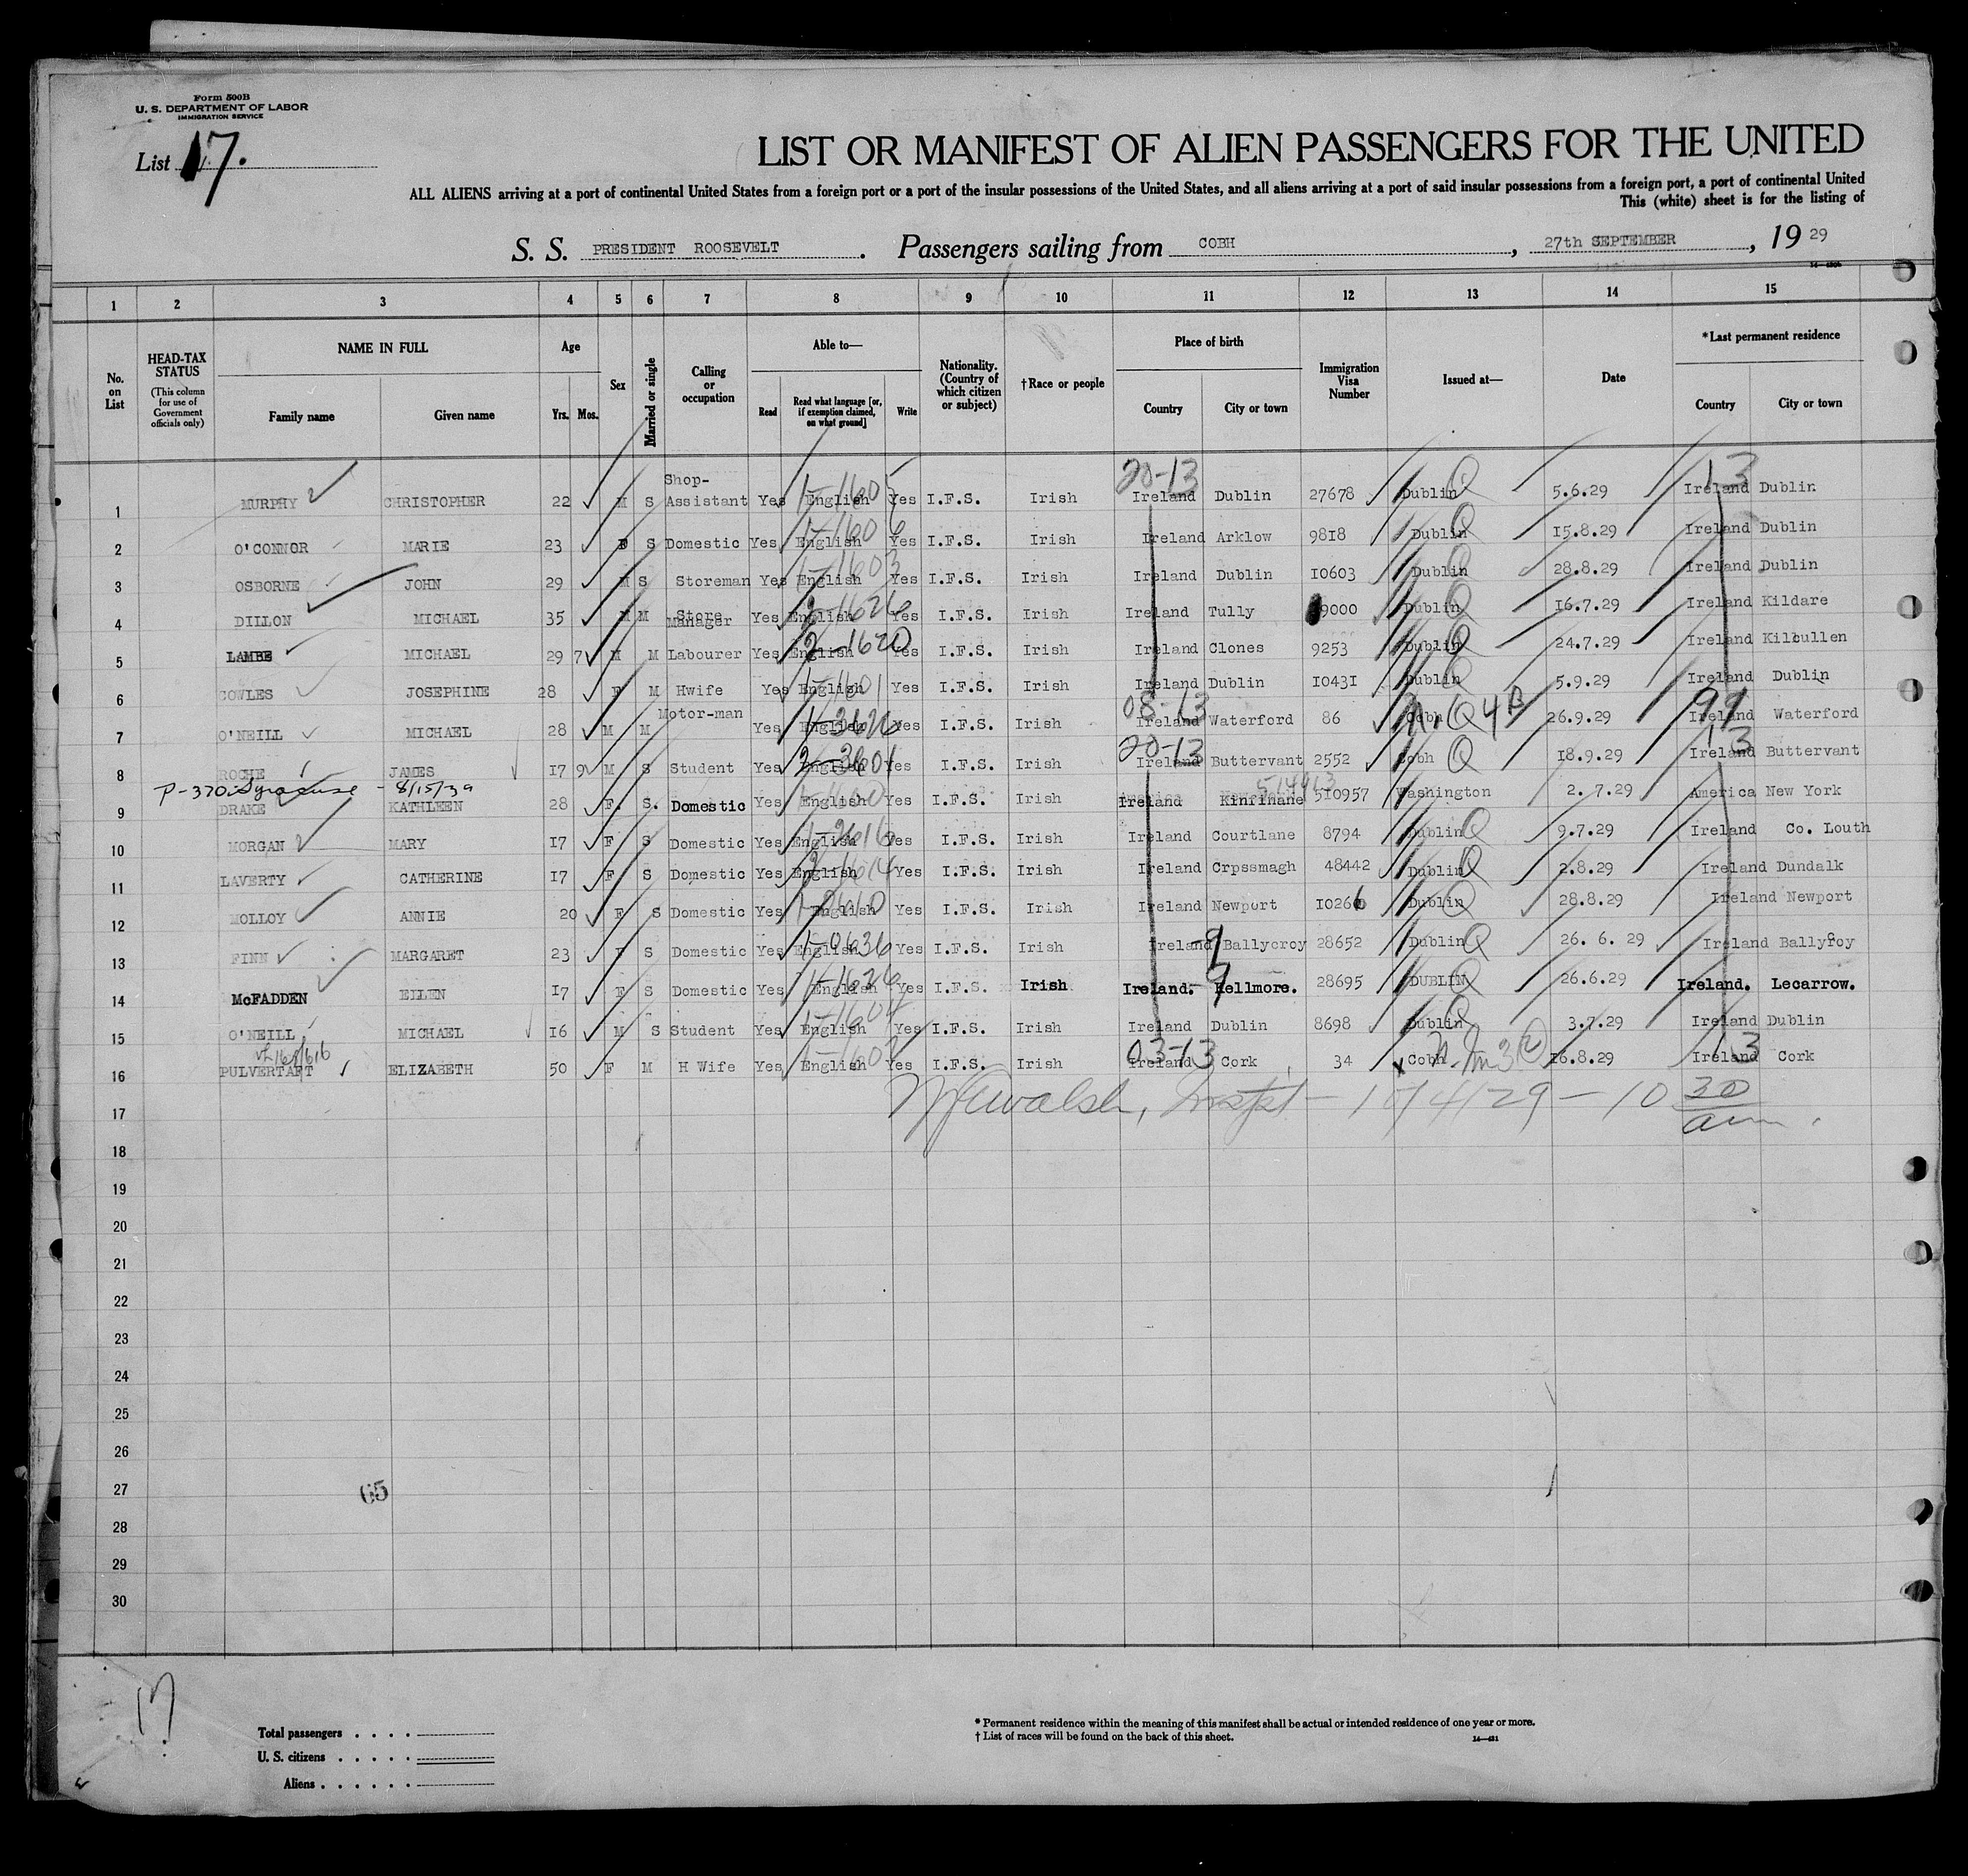 Form 500B
U. S. DEPARTMENT OF LABOR
IMMIGRATION SERVICE
List 17.
LIST OR MANIFEST OF ALIEN PASSENGERS FOR THE UNITED
ALL ALIENS arriving at a port of continental United States from a foreign port or a port of the insular possessions of the United States, and all aliens arriving at a port of said insular possessions from a foreign port, a port of continental United
This (white) sheet is for the listing of
S. S. PRESIDENT ROOSEVELT . Passengers sailing from COBH , 27th SEPTEMBER , 19 29
1 2 3 4 5 6 7 8 9 10 11 12 13 14 15
No. on List
HEAD-TAX STATUS (This column for use of Government officials only)
NAME IN FULL Family name Given name
Age Yrs. Mos.
Sex
Married or single
Calling or occupation
Able to— Read Read what language [or, if exemption claimed, on what ground] Write
Nationality. (Country of which citizen or subject)
†Race or people
Place of birth Country City or town
Immigration Visa Number
Issued at—
Date
*Last permanent residence Country City or town
20-13 13
1 MURPHY CHRISTOPHER 22 M S Shop-Assistant Yes English Yes I.F.S. Irish Ireland Dublin 27678 Dublin Q 5.6.29 Ireland Dublin
2 O'CONNOR MARIE 23 F S Domestic Yes English Yes I.F.S. Irish Ireland Arklow 9818 Dublin Q 15.8.29 Ireland Dublin
3 OSBORNE JOHN 29 M S Storeman Yes English Yes I.F.S. Irish Ireland Dublin 10603 Dublin Q 28.8.29 Ireland Dublin
4 DILLON MICHAEL 35 M M Store Manager Yes English Yes I.F.S. Irish Ireland Tully 9000 Dublin Q 16.7.29 Ireland Kildare
5 LAMBE MICHAEL 29 7 M M Labourer Yes English 2-1620 Yes I.F.S. Irish Ireland Clones 9253 Dublin Q 24.7.29 Ireland Kilcullen
6 COWLES JOSEPHINE 28 F M Hwife Yes English 1-1601 Yes I.F.S. Irish Ireland Dublin 10431 Dublin Q 5.9.29 Ireland Dublin
08-13 99
7 O'NEILL MICHAEL 28 M M Motor-man Yes English Yes I.F.S. Irish Ireland Waterford 86 Cobh Q 4B 26.9.29 Ireland Waterford
20-13 13
8 ROCHE JAMES 17 9 M S Student Yes English Yes I.F.S. Irish Ireland Buttervant 2552 Cobh Q 18.9.29 Ireland Buttervant
P-370 Syracuse - 8/15/39
9 DRAKE KATHLEEN 28 F. S. Domestic Yes English Yes I.F.S. Irish Ireland Kinfinane 510957 Washington 2. 7.29 America New York
10 MORGAN MARY 17 F S Domestic Yes English Yes I.F.S. Irish Ireland Courtlane 8794 Dublin Q 9.7.29 Ireland Co. Louth
11 LAVERTY CATHERINE 17 F S Domestic Yes English Yes I.F.S. Irish Ireland Crpssmagh 48442 Dublin Q 2.8.29 Ireland Dundalk
12 MOLLOY ANNIE 20 F S Domestic Yes English Yes I.F.S. Irish Ireland Newport 10266 Dublin Q 28.8.29 Ireland Newport
13 FINN MARGARET 23 F S Domestic Yes English Yes I.F.S. Irish Ireland 9 Ballycroy 28652 Dublin Q 26. 6. 29 Ireland Ballycoy
14 McFADDEN EILEN 17 F S Domestic Yes English 1-1626 Yes I.F.S. Irish Ireland. 9 Kellmore. 28695 DUBLIN Q 26.6.29 Ireland. Lecarrow.
15 O'NEILL MICHAEL 16 M S Student Yes English 1-1604 Yes I.F.S. Irish Ireland Dublin 8698 Dublin Q 3.7.29 Ireland Dublin
03-13 13
16 PULVERTAFT ELIZABETH 50 F M H Wife Yes English Yes I.F.S. Irish Ireland Cork 34 Cobh 16.8.29 Ireland Cork
17 Walsh, 10/4/29 - 10 30 am.
18
19
20
21
22
23
24
25
26
27
65
28
29
30
17
Total passengers . . . .
U. S. citizens . . . . .
Aliens . . . . . .
* Permanent residence within the meaning of this manifest shall be actual or intended residence of one year or more.
† List of races will be found on the back of this sheet.